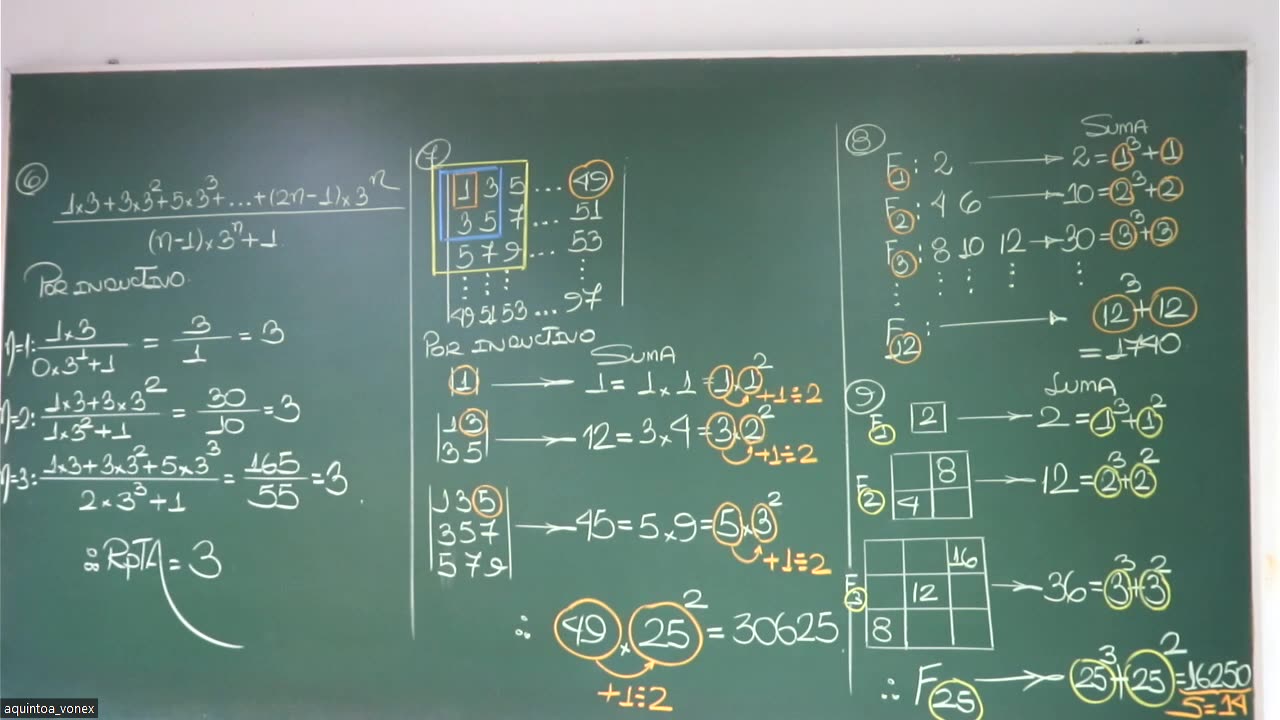 6
1×3+3×3²+5×3³+...+(2n-1)×3ⁿ
(n-1)×3ⁿ+1
POR INDUCTIVO
n=1: 1×3 / 0×3¹+1 = 3/1 = 3
n=2: 1×3+3×3² / 1×3²+1 = 30/10 = 3
n=3: 1×3+3×3²+5×3³ / 2×3³+1 = 165/55 = 3
∴ RPTA = 3
7
1 3 5 ... 49
3 5 7 ... 51
5 7 9 ... 53
⋮ ⋮ ⋮ ⋮
49 51 53 ... 97
POR INDUCTIVO
SUMA
|1| → 1 = 1×1 = 1×1²
+1÷2
1 3
3 5 → 12 = 3×4 = 3×2²
+1÷2
1 3 5
3 5 7 → 45 = 5×9 = 5×3²
5 7 9
+1÷2
∴ 49 × 25² = 30625
+1÷2
8
SUMA
F1: 2 → 2 = 1³+1
F2: 4 6 → 10 = 2³+2
F3: 8 10 12 → 30 = 3³+3
⋮ ⋮ ⋮ ⋮ ⋮
F12: → 12³+12
= 1740
9
SUMA
F1 2 → 2 = 1³+1²
8
F2 4 → 12 = 2³+2²
16
F3 12 → 36 = 3³+3²
8
∴ F25 → 25³+25² = 16250
S=14
aquintoa_vonex